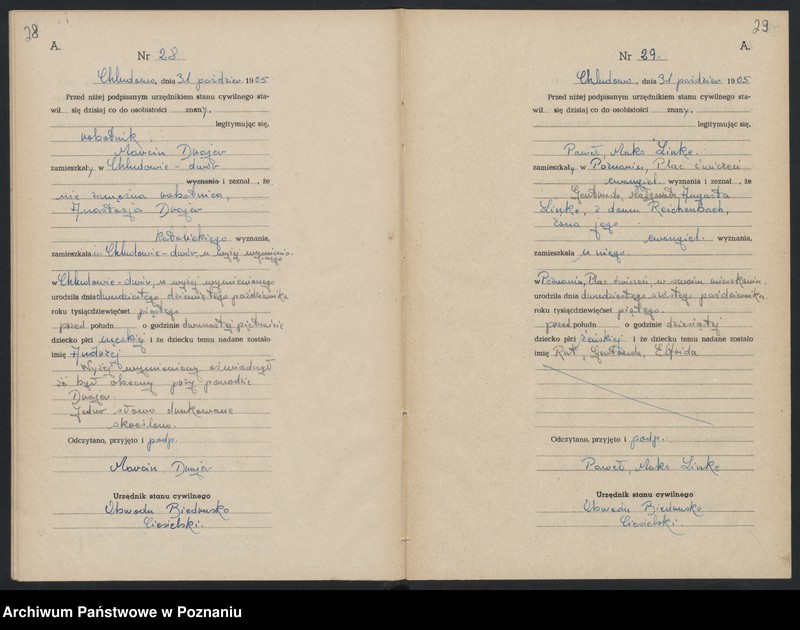 28
A.
Nr 28.
Chludowo, dnia 31 paździer. 1905
Przed niżej podpisanym urzędnikiem stanu cywilnego sta-
wił się dzisiaj co do osobistości znany,
legitymując się,
robotnik
Marcin Dwojer
zamieszkały w Chludowie - dwór
wyznania i zeznał, że
nie zamężna robotnica,
Anastazja Dwojer
katolickiego wyznania,
zamieszkała w Chludowie - dwór, u wyżej wymienio-
nego
w Chludowie - dwór, u wyżej wymienionego
urodziła dnia dwudziestego dziewiątego października
roku tysiącdziewięćset piątego
przed połudn o godzinie dwunastej piętnaście
dziecko płci męskiej i że dziecku temu nadane zostało
imię Andrzej
Wyżej wymieniony oświadczył
że był obecny przy porodzie
Dwojer.
Jedno słowo drukowane
skreślono.
Odczytano, przyjęto i podp.
Marcin Dwojer
Urzędnik stanu cywilnego
Obwodu Biedrusko
Ciesielski.
29
A.
Nr 29.
Chludowo, dnia 31 paździer. 1905
Przed niżej podpisanym urzędnikiem stanu cywilnego sta-
wił się dzisiaj co do osobistości znany,
legitymując się,
Paweł, Maks Linke.
zamieszkały w Poznaniu, Plac ćwiczeń
ewangiel. wyznania i zeznał, że
Gertruda, Małgorzata Augusta
Linke, z domu Reichenbach,
żona jego
ewangiel. wyznania,
zamieszkała u niego.
w Poznaniu, Plac ćwiczeń, w swoim mieszkaniu.
urodziła dnia dwudziestego szóstego października.
roku tysiącdziewięćset piątego.
przed połudn o godzinie dziesiątej
dziecko płci żeńskiej i że dziecku temu nadane zostało
imię Rut, Gertruda, Elfrida
Odczytano, przyjęto i podp.
Paweł, Maks Linke
Urzędnik stanu cywilnego
Obwodu Biedrusko
Ciesielski.
Archiwum Państwowe w Poznaniu